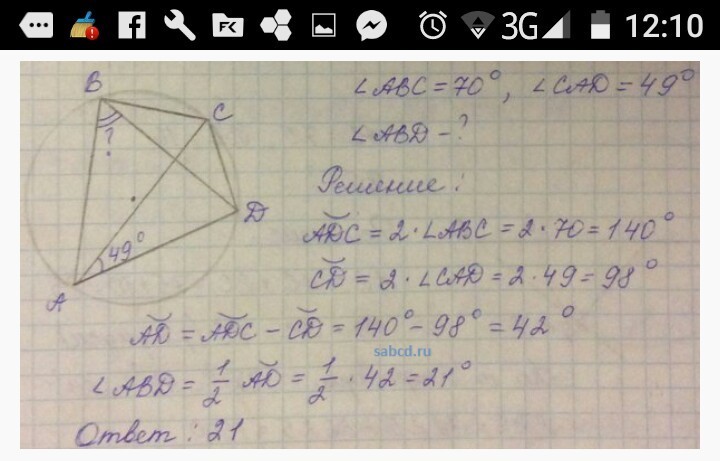 3G 12:10
B
∠ABC = 70°, ∠CAD = 49°
C
?
∠ABD - ?
Решение:
D
ADC = 2 · ∠ABC = 2 · 70 = 140°
49°
CD = 2 · ∠CAD = 2 · 49 = 98°
A
AD = ADC - CD = 140° - 98° = 42°
sabcd.ru
∠ABD = 1/2 AD = 1/2 · 42 = 21°
Ответ: 21